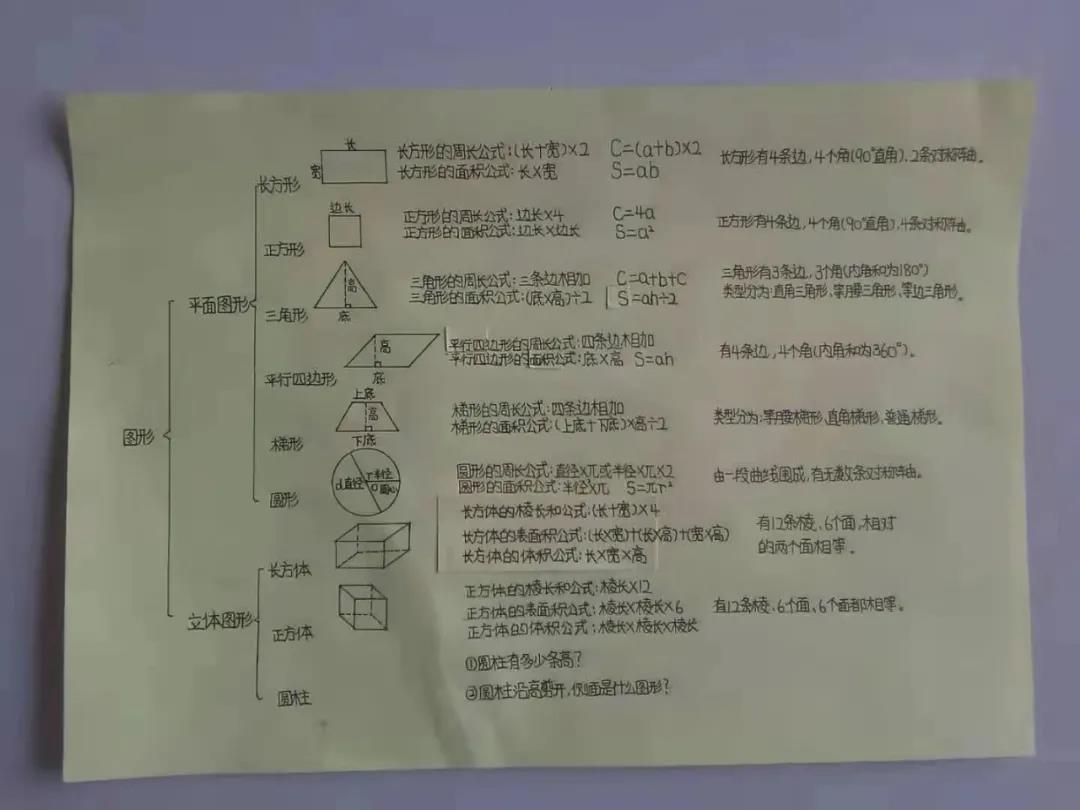 长
宽
长方形的周长公式:(长十宽)×2 C=(a+b)×2
长方形的面积公式:长×宽 S=ab
长方形有4条边,4个角(90°直角),2条对称轴。
长方形
边长
正方形的周长公式:边长×4 C=4a
正方形的面积公式:边长×边长 S=a²
正方形有4条边,4个角(90°直角),4条对称轴。
正方形
三角形的周长公式:三条边相加 C=a+b+c
三角形的面积公式:(底×高)÷2 S=ah÷2
三角形有3条边,3个角(内角和为180°)
类型分为:直角三角形,等腰三角形,等边三角形。
高
底
三角形
平面图形
平行四边形的周长公式:四条边相加
平行四边形的面积公式:底×高 S=ah
有4条边,4个角(内角和为360°)。
高
底
平行四边形
上底
高
下底
梯形的周长公式:四条边相加
梯形的面积公式:(上底十下底)×高÷2
类型分为:等腰梯形,直角梯形,普通梯形。
梯形
图形
圆形的周长公式:直径×π或半径×π×2
圆形的面积公式:半径²×π S=πr²
由一段曲线围成,有无数条对称轴。
d直径
r半径
O圆心
圆形
长方体的棱长和公式:(长十宽)×4
长方体的表面积公式:(长×宽)十(长×高)十(宽×高)
长方体的体积公式:长×宽×高
有12条棱、6个面,相对
的两个面相等。
长方体
正方体的棱长和公式:棱长×12
正方体的表面积公式:棱长×棱长×6
正方体的体积公式:棱长×棱长×棱长
有12条棱、6个面、6个面都相等。
立体图形
正方体
①圆柱有多少条高?
②圆柱沿高剪开,侧面是什么图形?
圆柱